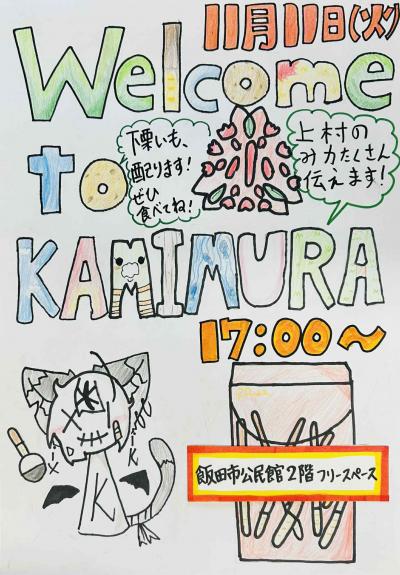 11月11日(火)
Welcome
to
KAMIMURA
下栗いも、
配ります!
ぜひ
食べてね!
上村の
みカたくさん
伝えます!
17:00〜
K
K
飯田市公民館2階フリースペース